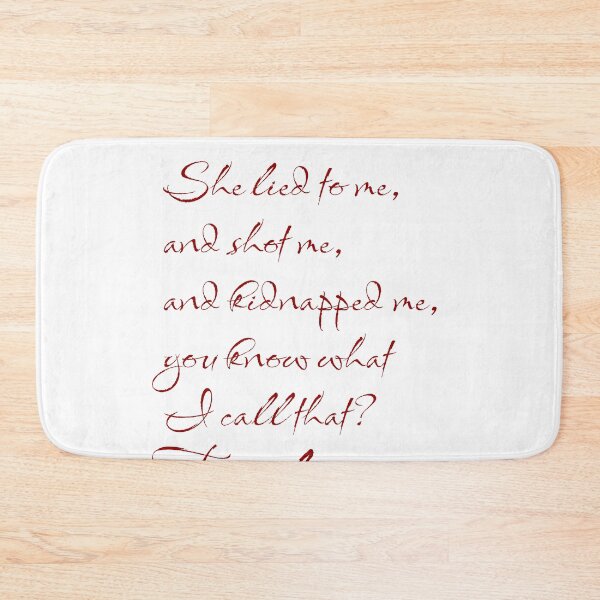 She lied to me,
and shot me,
and kidnapped me,
you know what
I call that?